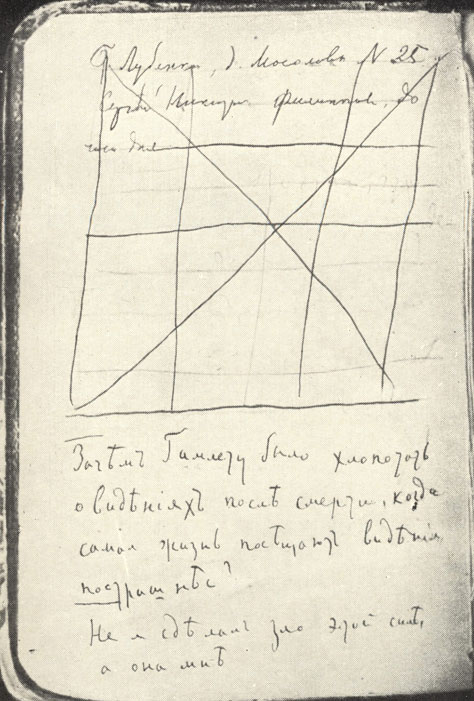 Лубянка, д. Мосолова N 25
Сергей Никитич Филиппов, до
часа дня
Зачѣмъ Гамлету было хлопотать
о видѣніяхъ послѣ смерти, когда
самая жизнь посѣщаютъ видѣнія
пострашнѣе?
Не я сдѣлалъ зло этой силѣ,
а она мнѣ